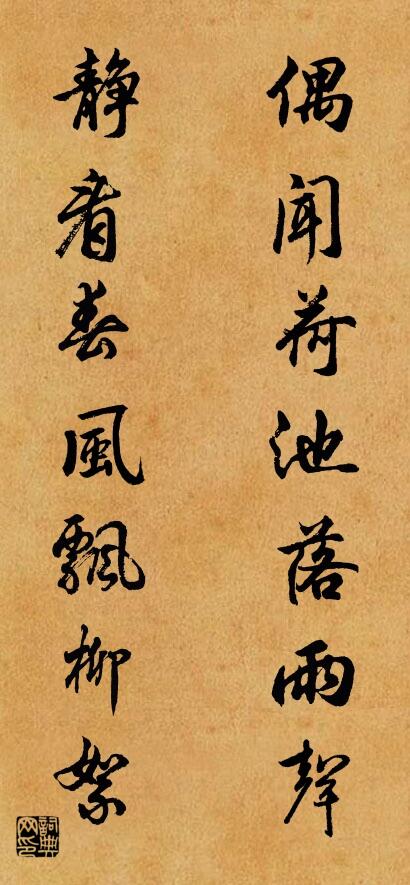 偶聞荷池落雨聲
靜看春風飄柳絮
詞典网印